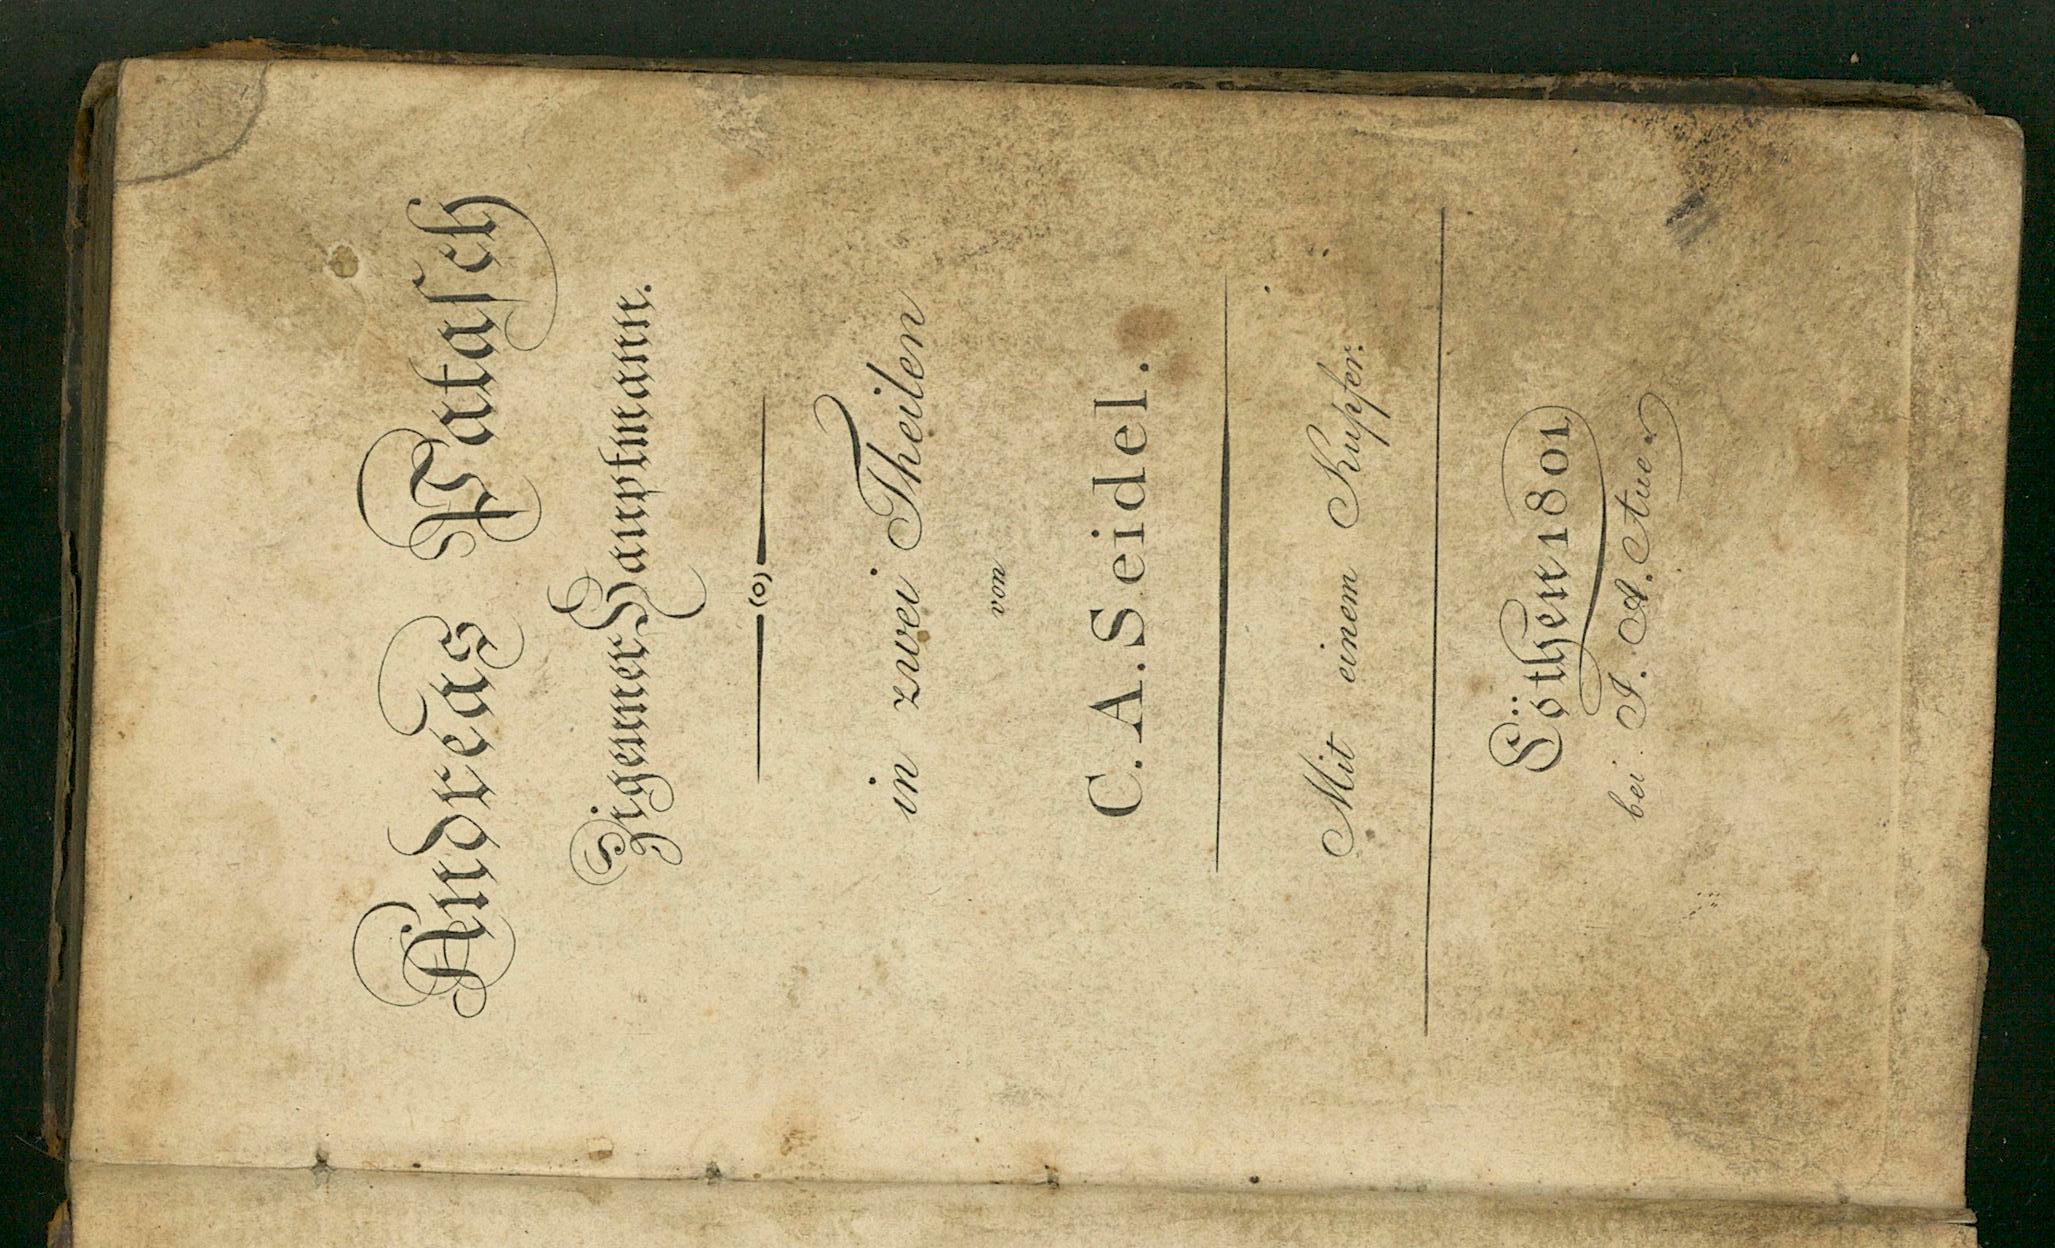 Andreas Pataſch
ZigeunerHauptmann.
(o)
in zwei Theilen
von
C.A.Seidel.
Mit einem Kupfer.
Cöthen 1801
bei J. A. Aue